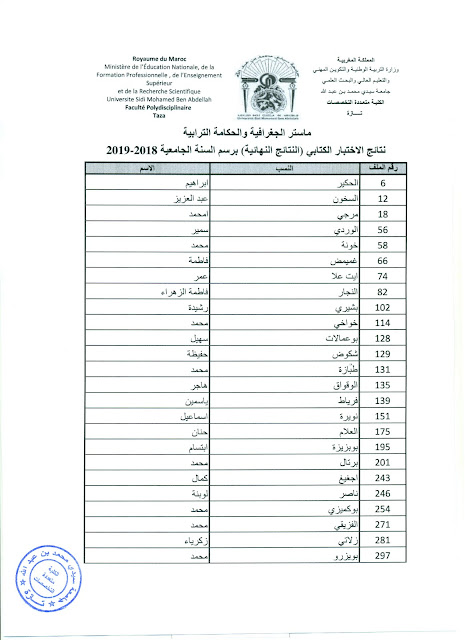 Royaume du Maroc
Ministère de l'Éducation Nationale, de la
Formation Professionnelle , de l'Enseignement
Supérieur
et de la Recherche Scientifique
Universite Sidi Mohamed Ben Abdellah
Faculté Polydisciplinaire
Taza
المملكة المغربية
وزارة التربية الوطنية والتكوين المهني
والتعليم العالي والبحث العلمي
جامعة سيدي محمد بن عبد الله
الكلية متعددة التخصصات
تازة
ماستر الجغرافية والحكامة الترابية
نتائج الاختبار الكتابي (النتائج النهائية) برسم السنة الجامعية 2018-2019
رقم الملف النسب الاسم
6 الحكير ابراهيم
12 السخون عبد العزيز
18 مرجي امحمد
56 الوردي سمير
58 خونة محمد
66 غميمض فاطمة
74 ايت علا عمر
82 النجار فاطمة الزهراء
102 بشيري رشيدة
114 خواخي محمد
128 بوعمالات سهيل
129 شكوض حفيظة
131 طبازة محمد
135 الوقواق هاجر
139 قرباط ياسمين
151 نويرة اسماعيل
175 العلام حنان
195 بوبزيزة ابتسام
201 برتال محمد
243 اجغيغ كمال
246 ناصر لوبنة
254 بوكميزي محمد
271 القزيقي محمد
281 زلاتي زكرياء
297 بويزرو محمد
جامعة سيدي محمد بن عبد الله
الكلية
متعددة
التخصصات
تازة